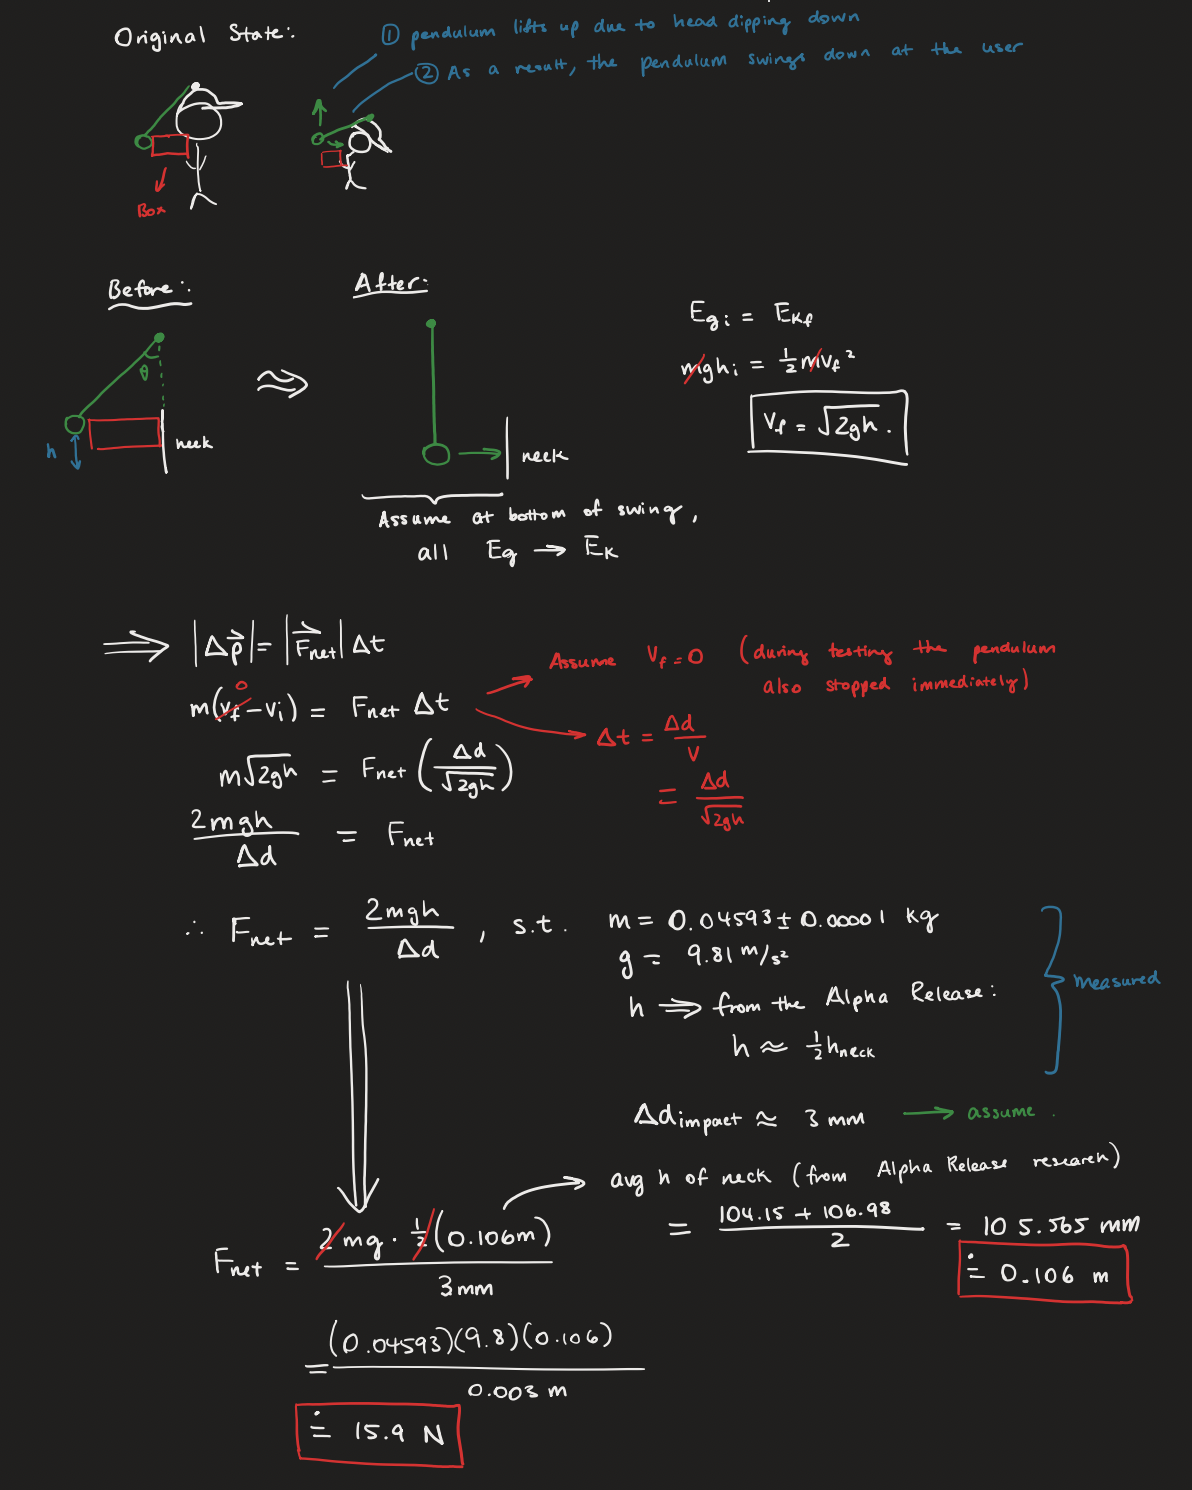 Original State:
① pendulum lifts up due to head dipping down
② As a result, the pendulum swings down at the user
Box
Before:
After:
θ
h
neck
neck
Assume at bottom of swing,
all Eg → Ek
Egi = Ekf
mghi = 1/2 mvf²
Vf = √2gh.
⇒ |Δp⃗| = |F⃗net| Δt
m(vf - vi) = Fnet Δt
0
Assume Vf = 0 (during testing the pendulum
also stopped immediately)
Δt = Δd/v
= Δd/√2gh
m√2gh = Fnet (Δd/√2gh)
2mgh/Δd = Fnet
∴ Fnet = 2mgh/Δd, s.t. m = 0.04593 ± 0.00001 kg
g = 9.81 m/s²
h ⇒ from the Alpha Release:
h ≈ 1/2 hneck
measured
Δd impact ≈ 3 mm → assume.
avg h of neck (from Alpha Release research)
= (104.15 + 106.98)/2 = 105.565 mm
≐ 0.106 m
Fnet = 2mg · 1/2 (0.106m) / 3mm
= (0.04593)(9.8)(0.106) / 0.003 m
≐ 15.9 N